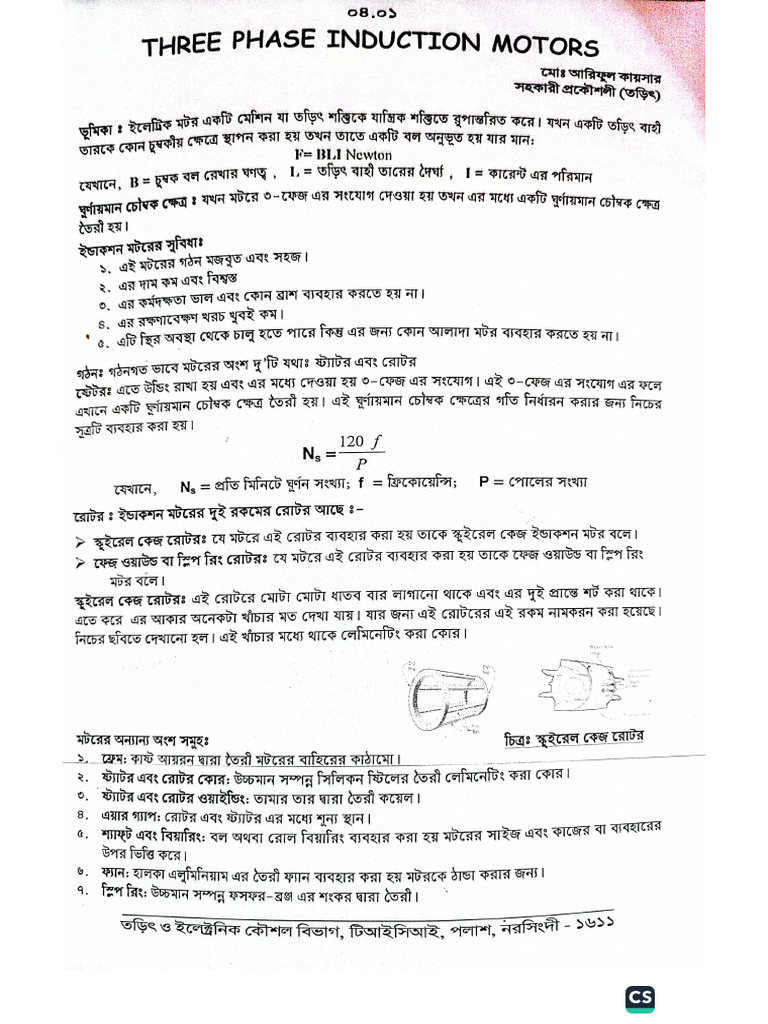 ০৪.০১
THREE PHASE INDUCTION MOTORS
মোঃ আরিফুল কায়সার
সহকারী প্রকৌশলী (তড়িৎ)
ভূমিকা ঃ ইলেট্রিক মটর একটি মেশিন যা তড়িৎ শক্তিকে যান্ত্রিক শক্তিতে রুপান্তরিত করে। যখন একটি তড়িৎ বাহী
তারকে কোন চুম্বকীয় ক্ষেত্রে স্থাপন করা হয় তখন তাতে একটি বল অনুভূত হয় যার মান:
F= BLI Newton
যেখানে, B = চুম্বক বল রেখার ঘণত্ব , L = তড়িৎ বাহী তারের দৈর্ঘ্য , I = কারেন্ট এর পরিমান
ঘুর্ণায়মান চৌম্বক ক্ষেত্র ঃ যখন মটরে ৩-ফেজ এর সংযোগ দেওয়া হয় তখন এর মধ্যে একটি ঘুর্ণায়মান চৌম্বক ক্ষেত্র
তৈরী হয়।
ইন্ডাকশন মটরের সুবিধাঃ
১. এই মটরের গঠন মজবুত এবং সহজ।
২. এর দাম কম এবং বিশ্বস্ত
৩. এর কর্মদক্ষতা ভাল এবং কোন ব্রাশ ব্যবহার করতে হয় না।
৪. এর রক্ষণাবেক্ষণ খরচ খুবই কম।
৫. এটি স্থির অবস্থা থেকে চালু হতে পারে কিন্তু এর জন্য কোন আলাদা মটর ব্যবহার করতে হয় না।
গঠনঃ গঠনগত ভাবে মটরের অংশ দু'টি যথাঃ ষ্ট্যাটর এবং রোটর
ষ্টেটরঃ এতে উন্ডিং রাখা হয় এবং এর মধ্যে দেওয়া হয় ৩-ফেজ এর সংযোগ। এই ৩-ফেজ এর সংযোগ এর ফলে
এখানে একটি ঘুর্ণায়মান চৌম্বক ক্ষেত্র তৈরী হয়। এই ঘুর্ণায়মান চৌম্বক ক্ষেত্রের গতি নির্ধারন করার জন্য নিচের
সূত্রটি ব্যবহার করা হয়।
Ns = 120 f / P
যেখানে, Ns = প্রতি মিনিটে ঘুর্ণন সংখ্যা; f = ফ্রিকোয়েন্সি; P = পোলের সংখ্যা
রোটর ঃ ইন্ডাকশন মটরের দুই রকমের রোটর আছে ঃ-
➢ স্কুইরেল কেজ রোটরঃ যে মটরে এই রোটর ব্যবহার করা হয় তাকে স্কুইরেল কেজ ইন্ডাকশন মটর বলে।
➢ ফেজ ওয়াউন্ড বা স্লিপ রিং রোটরঃ যে মটরে এই রোটর ব্যবহার করা হয় তাকে ফেজ ওয়াউন্ড বা স্লিপ রিং
মটর বলে।
স্কুইরেল কেজ রোটরঃ এই রোটরে মোটা মোটা ধাতব বার লাগানো থাকে এবং এর দুই প্রান্তে শর্ট করা থাকে।
এতে করে এর আকার অনেকটা খাঁচার মত দেখা যায়। যার জন্য এই রোটরের এই রকম নামকরন করা হয়েছে।
নিচের ছবিতে দেখানো হল। এই খাঁচার মধ্যে থাকে লেমিনেটিং করা কোর।
চিত্রঃ স্কুইরেল কেজ রোটর
মটরের অন্যান্য অংশ সমূহঃ
১. ফ্রেম: কাষ্ট আয়রন দ্বারা তৈরী মটরের বাহিরের কাঠামো।
২. ষ্ট্যাটর এবং রোটর কোর: উচ্চমান সম্পন্ন সিলিকন ষ্টিলের তৈরী লেমিনেটিং করা কোর।
৩. ষ্ট্যাটর এবং রোটর ওয়াইন্ডিং: তামার তার দ্বারা তৈরী কয়েল।
৪. এয়ার গ্যাপ: রোটর এবং ষ্ট্যাটর এর মধ্যে শূন্য স্থান।
৫. শ্যাফ্ট এবং বিয়ারিং: বল অথবা রোল বিয়ারিং ব্যবহার করা হয় মটরের সাইজ এবং কাজের বা ব্যবহারের
উপর ভিত্তি করে।
৬. ফ্যান: হালকা এলুমিনিয়াম এর তৈরী ফ্যান ব্যবহার করা হয় মটরকে ঠান্ডা করার জন্য।
৭. স্লিপ রিং: উচ্চমান সম্পন্ন ফসফর-ব্রঞ্জ এর শংকর দ্বারা তৈরী।
তড়িৎ ও ইলেক্ট্রনিক কৌশল বিভাগ, টিআইসিআই, পলাশ, নরসিংদী - ১৬১১
CS